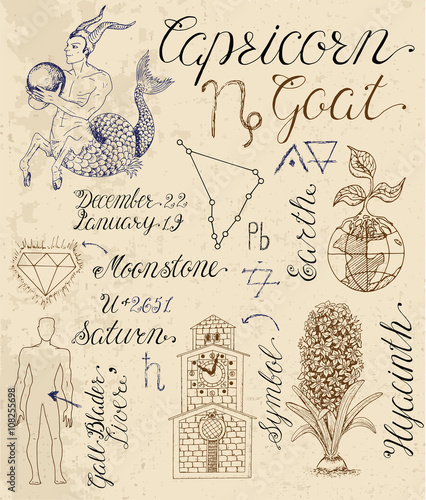 Capricorn
Goat
December 22
January 19
Pb
Earth
Moonstone
U+2651
Saturn
Symbol
Gall Blader
Liver
Hyacinth
108255698
Adobe Stock